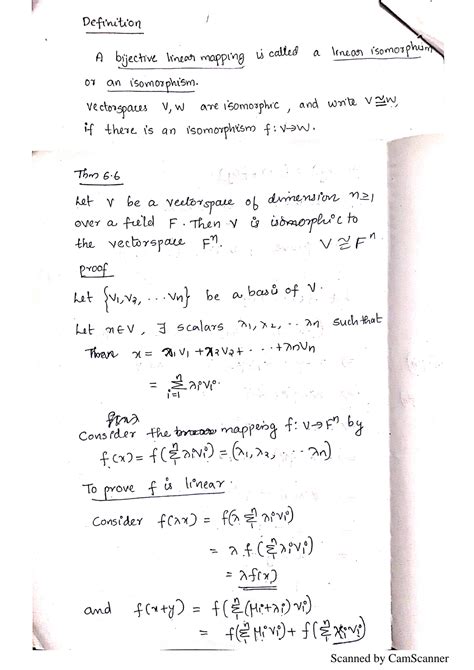 Definition
A bijective linear mapping is called a linear isomorphism
or an isomorphism.
Vectorspaces V, W are isomorphic, and write V≅W,
if there is an isomorphism f: V→W.
Thm 6.6
Let V be a vectorspace of dimension n≥1
over a field F. Then V is isomorphic to
the vectorspace Fⁿ. V≅Fⁿ.
proof
Let {v₁, v₂, ... vₙ} be a basis of V.
Let x∈V, ∃ scalars λ₁, λ₂, ... λₙ such that
Then x = λ₁v₁ + λ₂v₂ + ... + λₙvₙ
= ⁿΣᵢ₌₁ λᵢvᵢ.
Consider the mapping f: V→Fⁿ by
f(x) = f(ⁿΣ₁ λᵢvᵢ) = (λ₁, λ₂, ... λₙ)
To prove f is linear.
Consider f(λx) = f(λ ⁿΣ₁ λᵢvᵢ)
= λ f(ⁿΣ₁ λᵢvᵢ)
= λf(x)
and f(x+y) = f(ⁿΣ₁ (μᵢ+λᵢ) vᵢ)
= f(ⁿΣ₁ μᵢvᵢ) + f(ⁿΣ₁ λᵢvᵢ)
Scanned by CamScanner